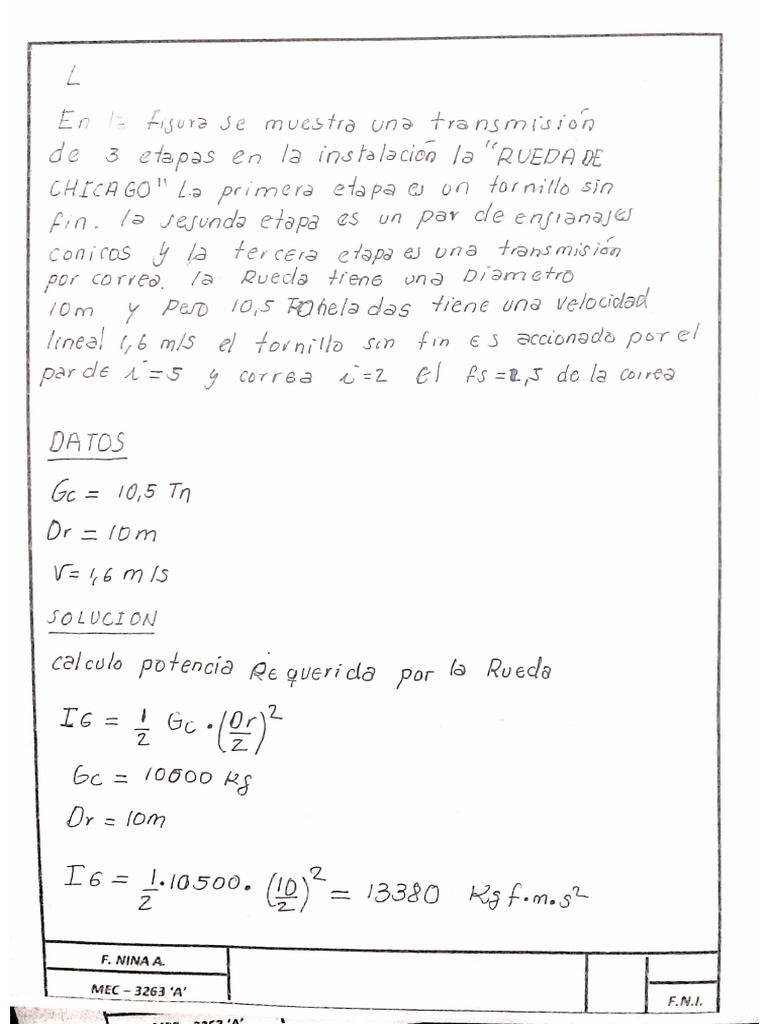 L
En la figura se muestra una transmisión
de 3 etapas en la instalación la "RUEDA DE
CHICAGO" La primera etapa es un tornillo sin
fin. la segunda etapa es un par de engranajes
conicos y la tercera etapa es una transmisión
por correa. la Rueda tiene una Diametro
10m y Peso 10,5 Toneladas tiene una velocidad
lineal 1,6 m/s el tornillo sin fin es accionado por el
par de i=5 y correa i=2 el fs=1,5 de la correa
DATOS
Gc = 10,5 Tn
Dr = 10m
V= 1,6 m/s
SOLUCION
calculo potencia Requerida por la Rueda
IG = 1/2 Gc . (Dr/2)^2
Gc = 10500 kg
Dr = 10m
IG = 1/2 . 10500 . (10/2)^2 = 13380 Kgf.m.s^2
F. NINA A.
MEC – 3263 'A'
F.N.I.
MEC – 3263 'A'